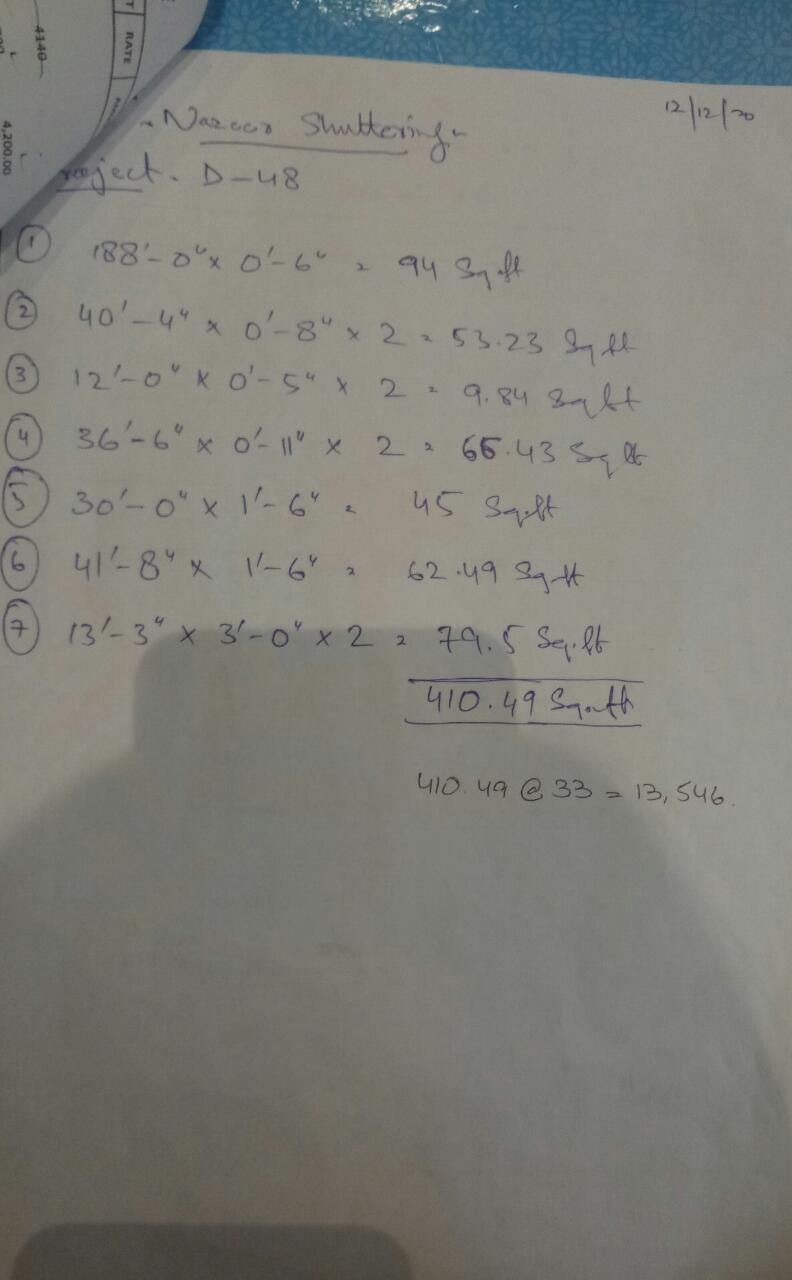 RATE
4140
4,200.00
12/12/20
Nazeer Shuttering
Project. D-48
① 188'-0" x 0'-6" = 94 Sq.ft
② 40'-4" x 0'-8" x 2 = 53.23 Sq ft
③ 12'-0" x 0'-5" x 2 = 9.84 Sq ft
④ 36'-6" x 0'-11" x 2 = 66.43 Sq ft
⑤ 30'-0" x 1'-6" = 45 Sq.ft
⑥ 41'-8" x 1'-6" = 62.49 Sq ft
⑦ 13'-3" x 3'-0" x 2 = 79.5 Sq.ft
410.49 Sq.ft
410.49 @ 33 = 13,546.